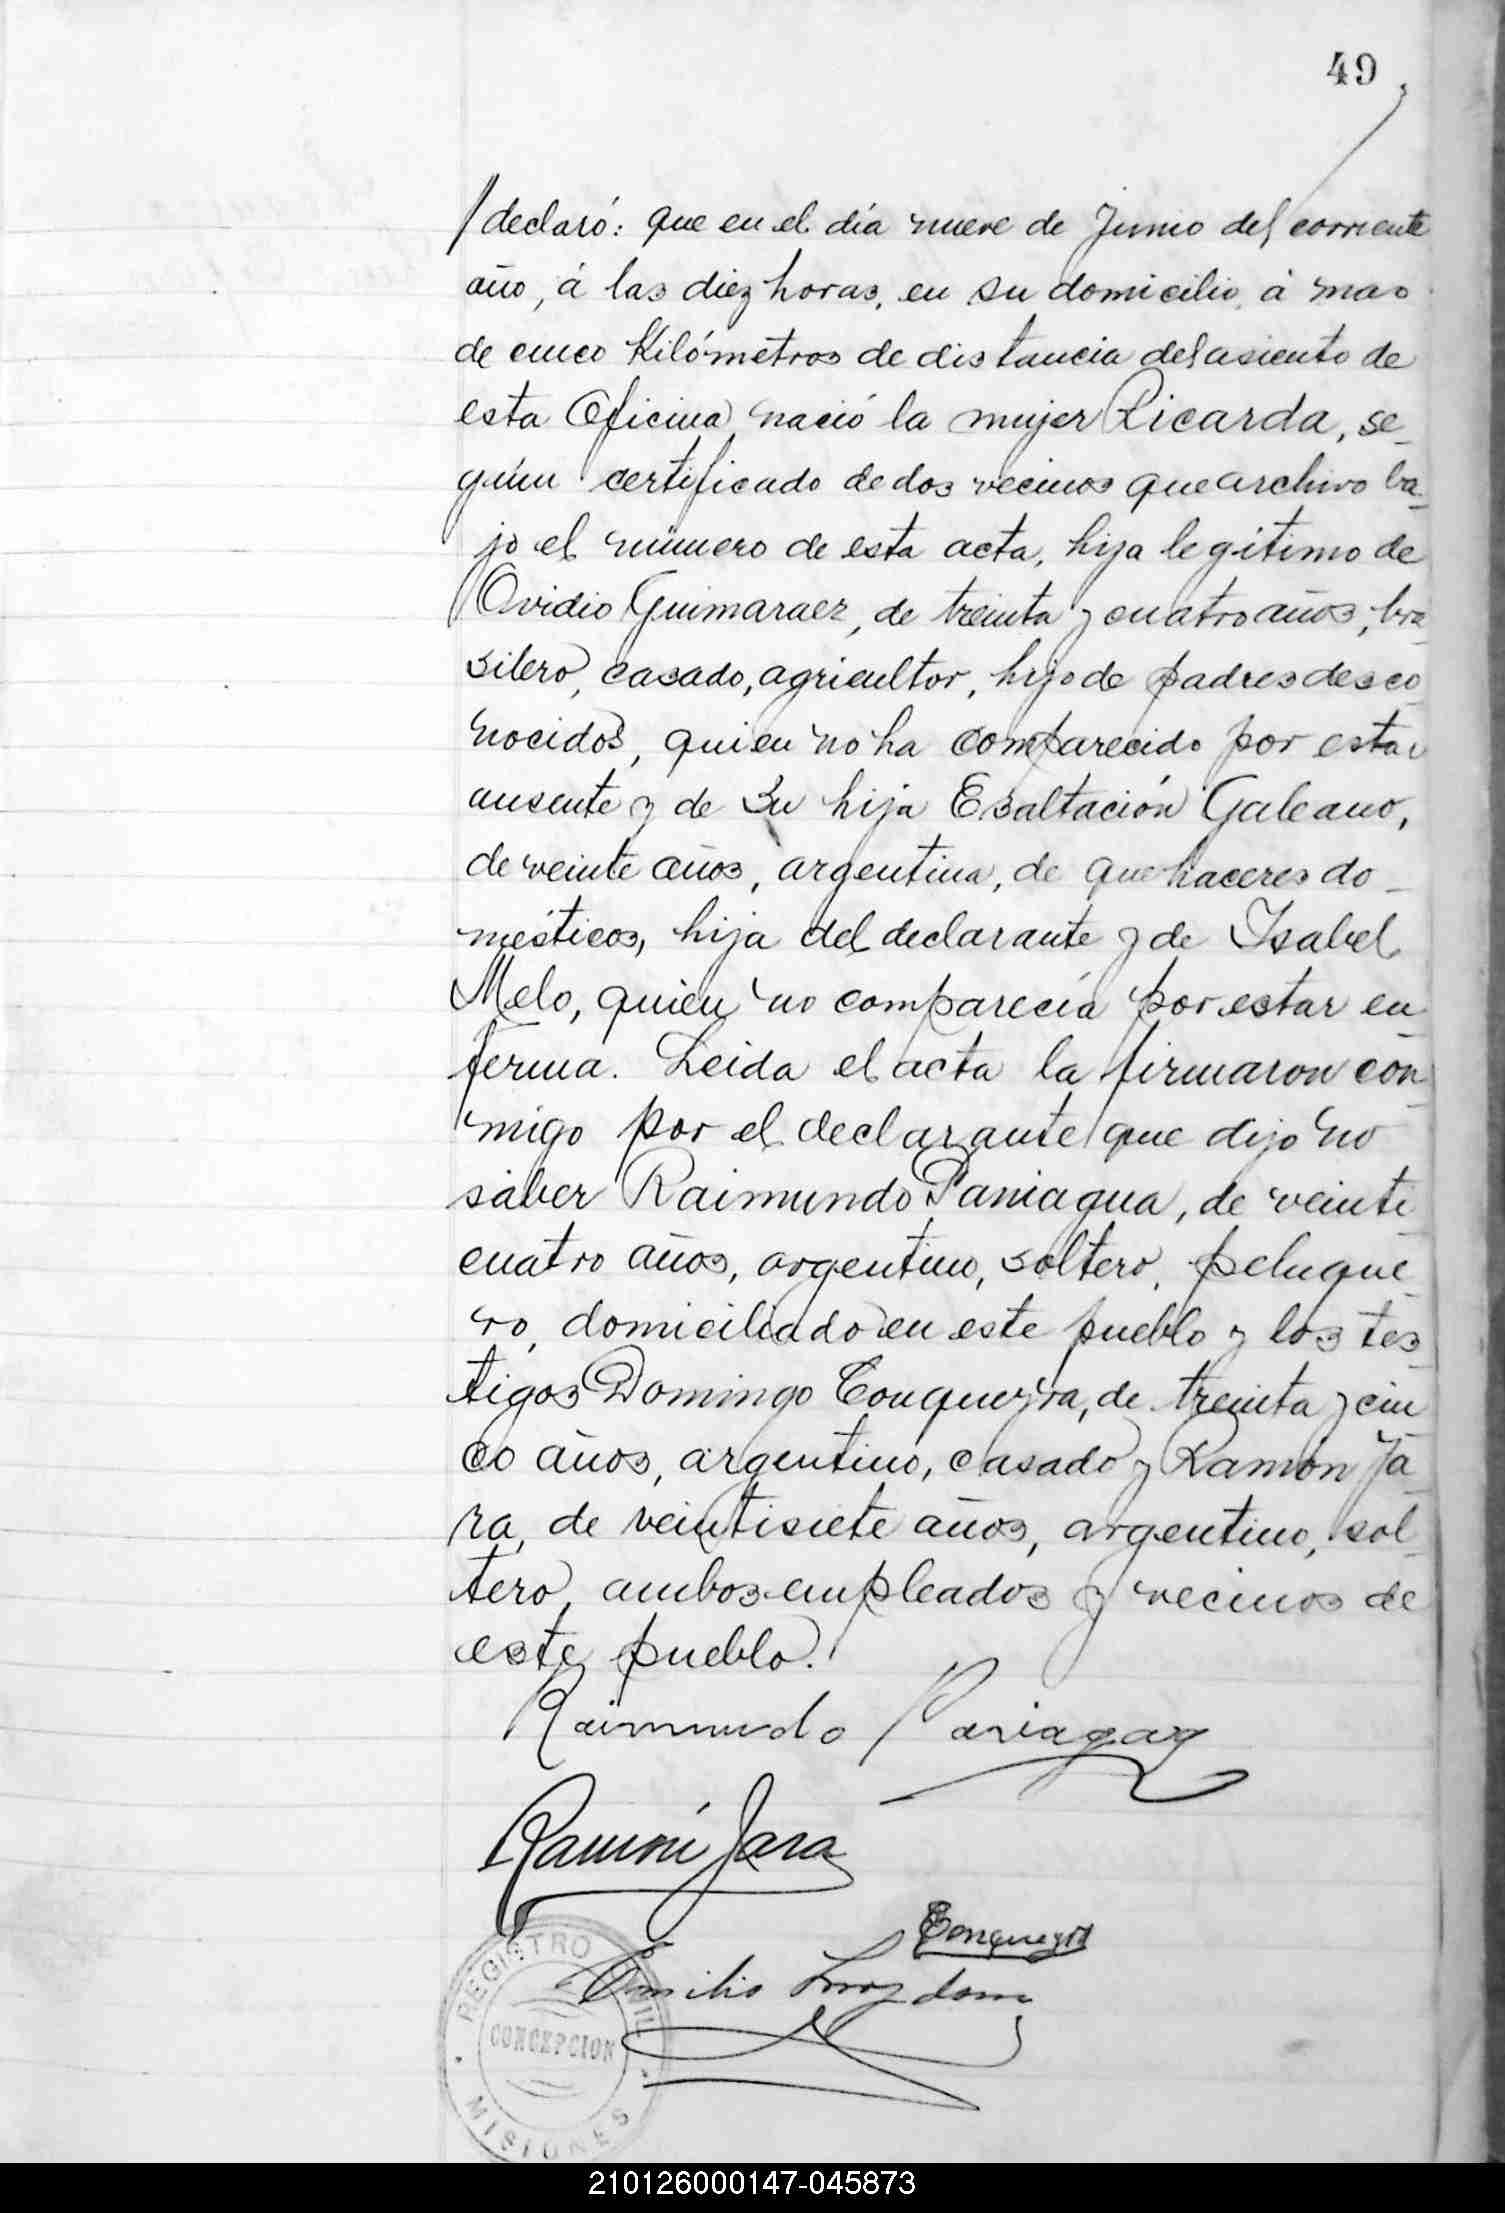 49
declaró: que en el día nueve de Junio del corriente
año, á las diez horas, en su domicilio, á mas
de cinco kilómetros de distancia del asiento de
esta Oficina, nació la mujer Ricarda, se_
gún certificado de dos vecinos que archivo ba_
jo el número de esta acta, hija legitimo de
Ovidio Guimaraez, de treinta y cuatro años, bra_
silero, casado, agricultor, hijo de padres desco_
nocidos, quien no ha comparecido por estar
ausente y de su hija Esaltación Galeano,
de veinte años, argentina, de quehaceres do_
mésticos, hija del declarante y de Isabel
Melo, quien no comparecía por estar en_
ferma. Leida el acta la firmaron con_
migo por el declarante que dijo no
saber Raimundo Paniagua, de veinti_
cuatro años, argentino, soltero, peluque_
ro, domiciliado en este pueblo y los tes_
tigos Domingo Conqueyra, de treinta y cin_
co años, argentino, casado y Ramón Ja_
ra, de veintisiete años, argentino, sol_
tero, ambos empleados y vecinos de
este pueblo.
Raimundo Paniagua
Ramón Jara
Emilio
REGISTRO CIVIL
CONCEPCION
MISIONES
210126000147-045873